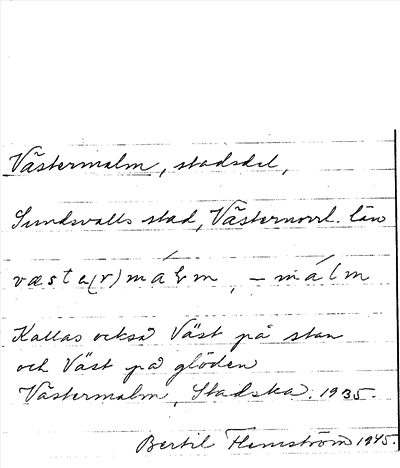 Västermalm, stadsdel,
Sundsvalls stad, Västernorrl. län
væsta(r)málm, – málm
Kallas också Väst på stan
och Väst på glöden
Västermalm, Stadska. 1935.
Bertil Flemström 1945.